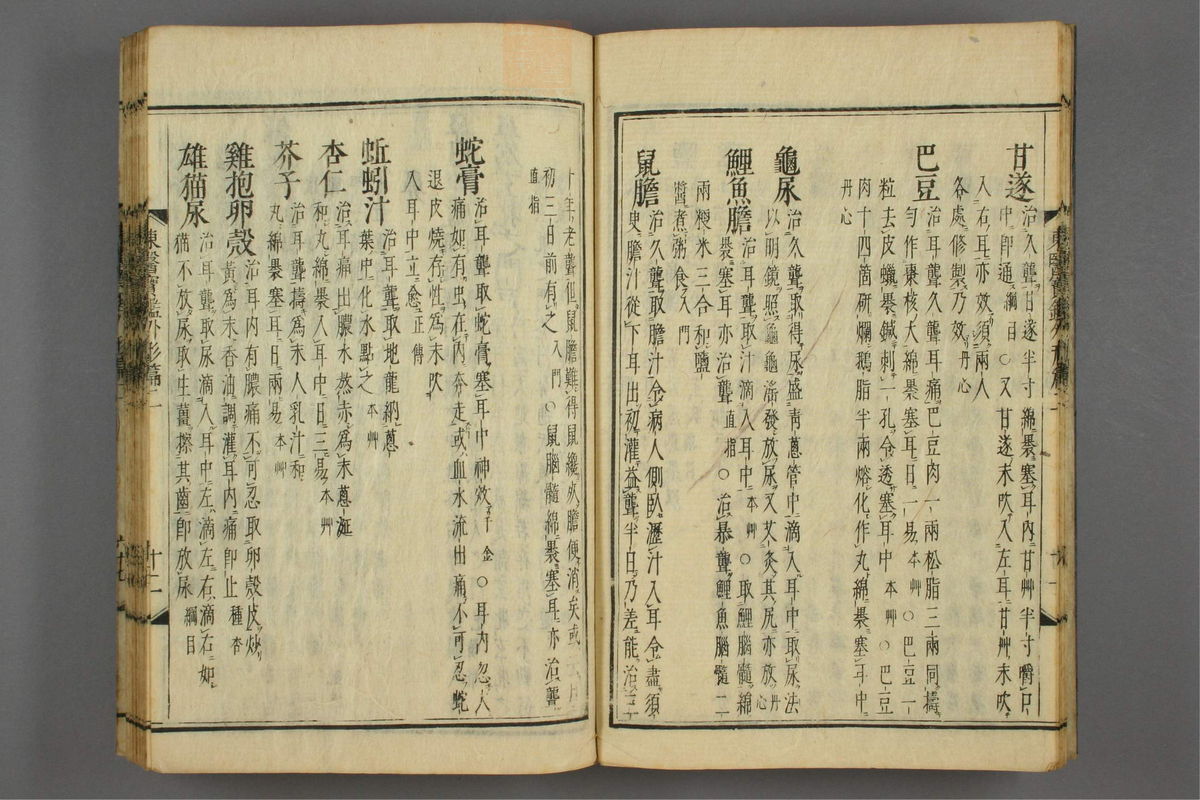 甘遂治久聾甘遂半寸綿裹塞耳內甘艸半寸嚼口
中卽通綱目○又甘遂末吹入左耳甘艸末吹
入右耳亦效須兩人
各處修製乃效丹心
巴豆治耳聾久聾耳痛巴豆肉一兩松脂三兩同擣
勻作棗核大綿裹塞耳日一易本艸○巴豆一
粒去皮蠟裹鍼刺一孔令透塞耳中本艸○巴豆
肉十四箇研爛鵝脂半兩熔化作丸綿裹塞耳中
丹心
龜尿治久聾取得尿盛靑蔥管中滴入耳中取尿法
以明鏡照龜龜淫發放尿又艾灸其尻亦放丹心
鯉魚膽治耳聾取汁滴入耳中本艸○取鯉腦髓綿
裹塞耳亦治聾直指○治暴聾鯉魚腦髓二
兩粳米三合和鹽
醬煮粥食入門
鼠膽治久聾取膽汁令病人側臥瀝汁入耳令盡須
臾膽汁從下耳出初灌益聾半日乃差能治三
十年老聾但鼠膽難得鼠纔死膽便消矣或云月
初三日前有之入門○鼠腦髓綿裹塞耳亦治聾
直指
蛇膏治耳聾取蛇膏塞耳中神效千金○耳內忽人
痛如有虫在內奔走或血水流出痛不可忍蛇
退皮燒存性爲末吹
入耳中立愈正傳
蚯蚓汁治耳聾取地龍納蔥
葉中化水點之本艸
杏仁治耳痛出膿水熬赤爲末蔥涎
和丸綿裹入耳中日三易本艸
芥子治耳聾擣爲末人乳汁和
丸綿裹塞耳日兩易本艸
雞抱卵殼治耳內有膿痛不可忍取卵殼皮炒
黃爲末香油調灌耳內痛卽止種杏
雄猫尿治耳聾取尿滴入耳中左滴左右滴右如
猫不放尿取生薑擦其齒卽放尿綱目
東醫寶鑑外形篇二
十二